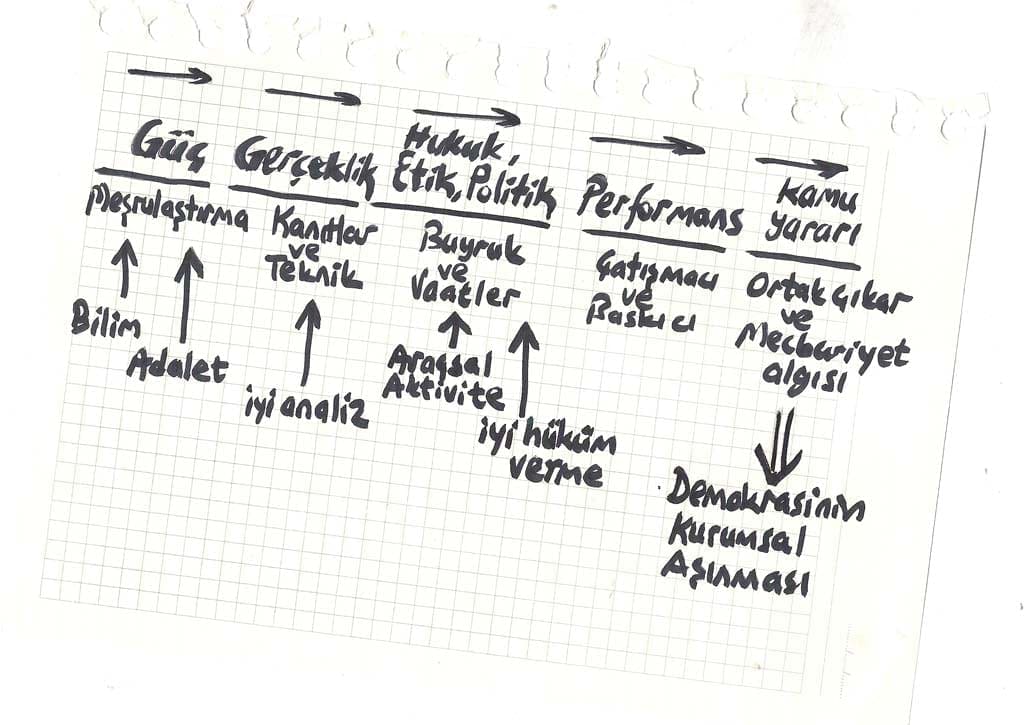 Güç
Meşrulaştırma
Bilim
Adalet
Gerçeklik
Kanıtlar
ve
Teknik
iyi analiz
Hukuk,
Etik, Politik
Buyruk
ve
Vaatler
Araçsal
Aktivite
iyi hüküm
verme
Performans
Çatışmacı
ve
Baskıcı
Kamu
yararı
Ortak çıkar
ve
Mecburiyet
algısı
Demokrasinin
Kurumsal
Aşınması